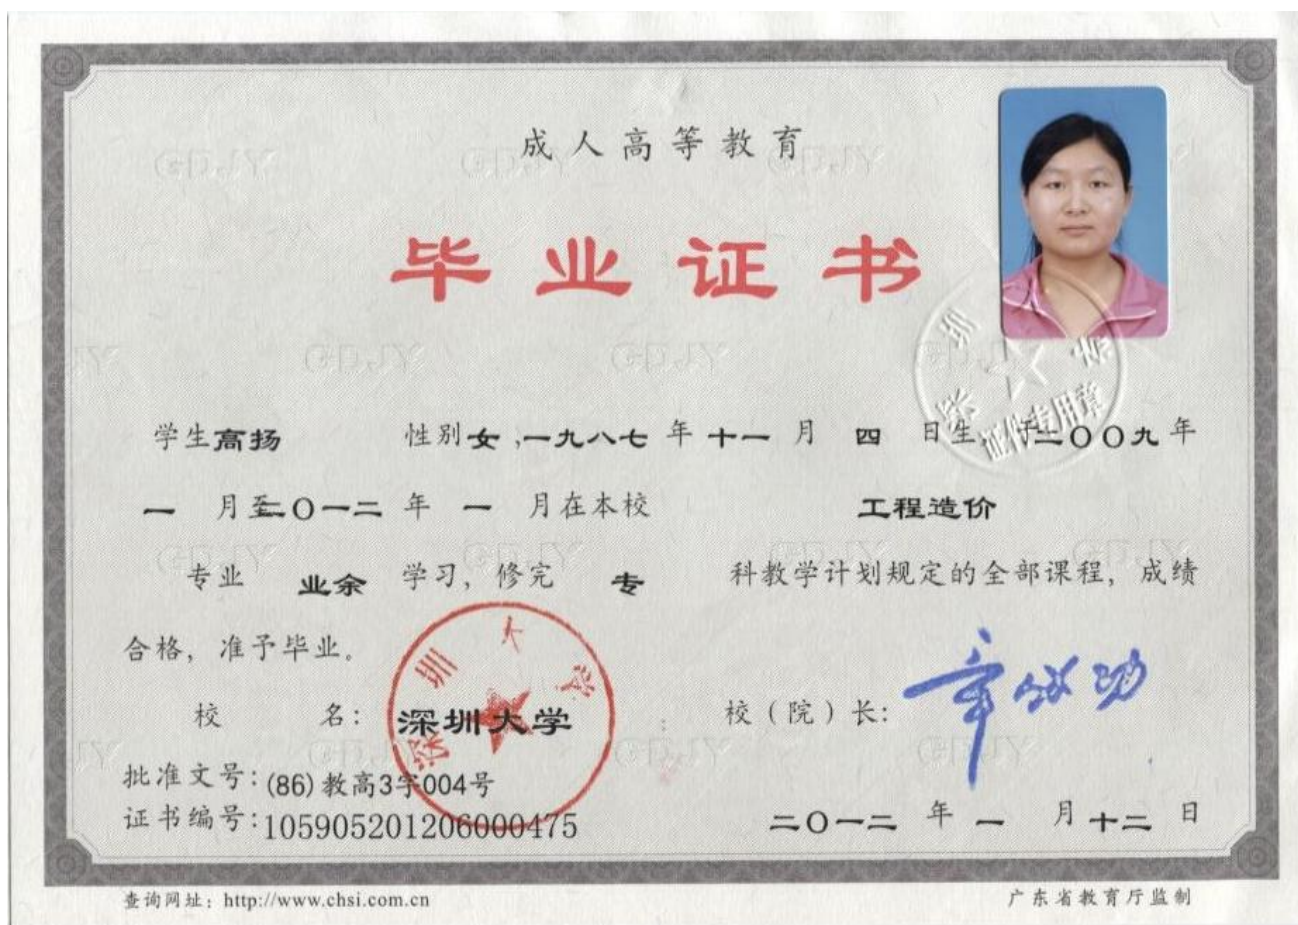 成人高等教育
毕业证书
学生高扬 性别女,一九八七年十一月四日生,于二〇〇九年
一月至二〇一二年一月在本校 工程造价
专业 业余 学习,修完 专 科教学计划规定的全部课程,成绩
合格,准予毕业。
校 名:深圳大学 校(院)长:章必功
批准文号:(86)教高3字004号
证书编号:105905201206000475
二〇一二年一月十二日
查询网址:http://www.chsi.com.cn 广东省教育厅监制
深圳大学
深圳大学
证件专用章
GDJY